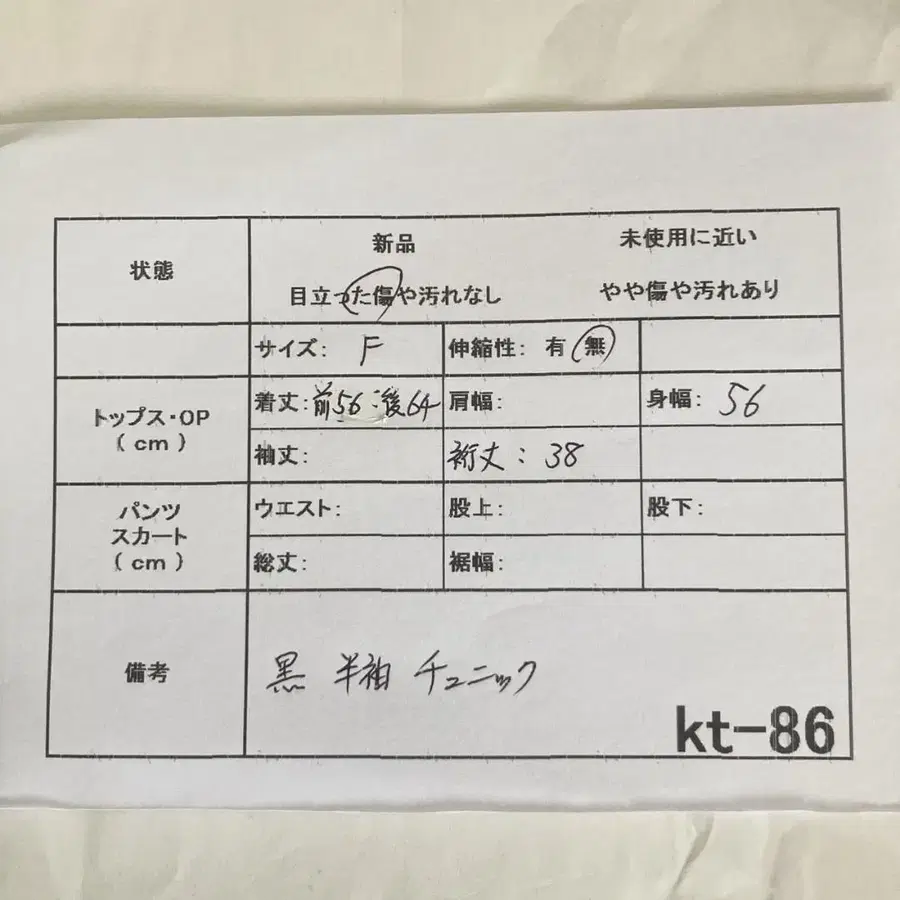 状態
新品 未使用に近い
目立った傷や汚れなし やや傷や汚れあり
サイズ: F 伸縮性: 有 無
トップス・OP
(cm)
着丈:前56:後64 肩幅: 身幅: 56
袖丈: 裄丈: 38
パンツ
スカート
(cm)
ウエスト: 股上: 股下:
総丈: 裾幅:
備考
黒 半袖 チュニック
kt-86